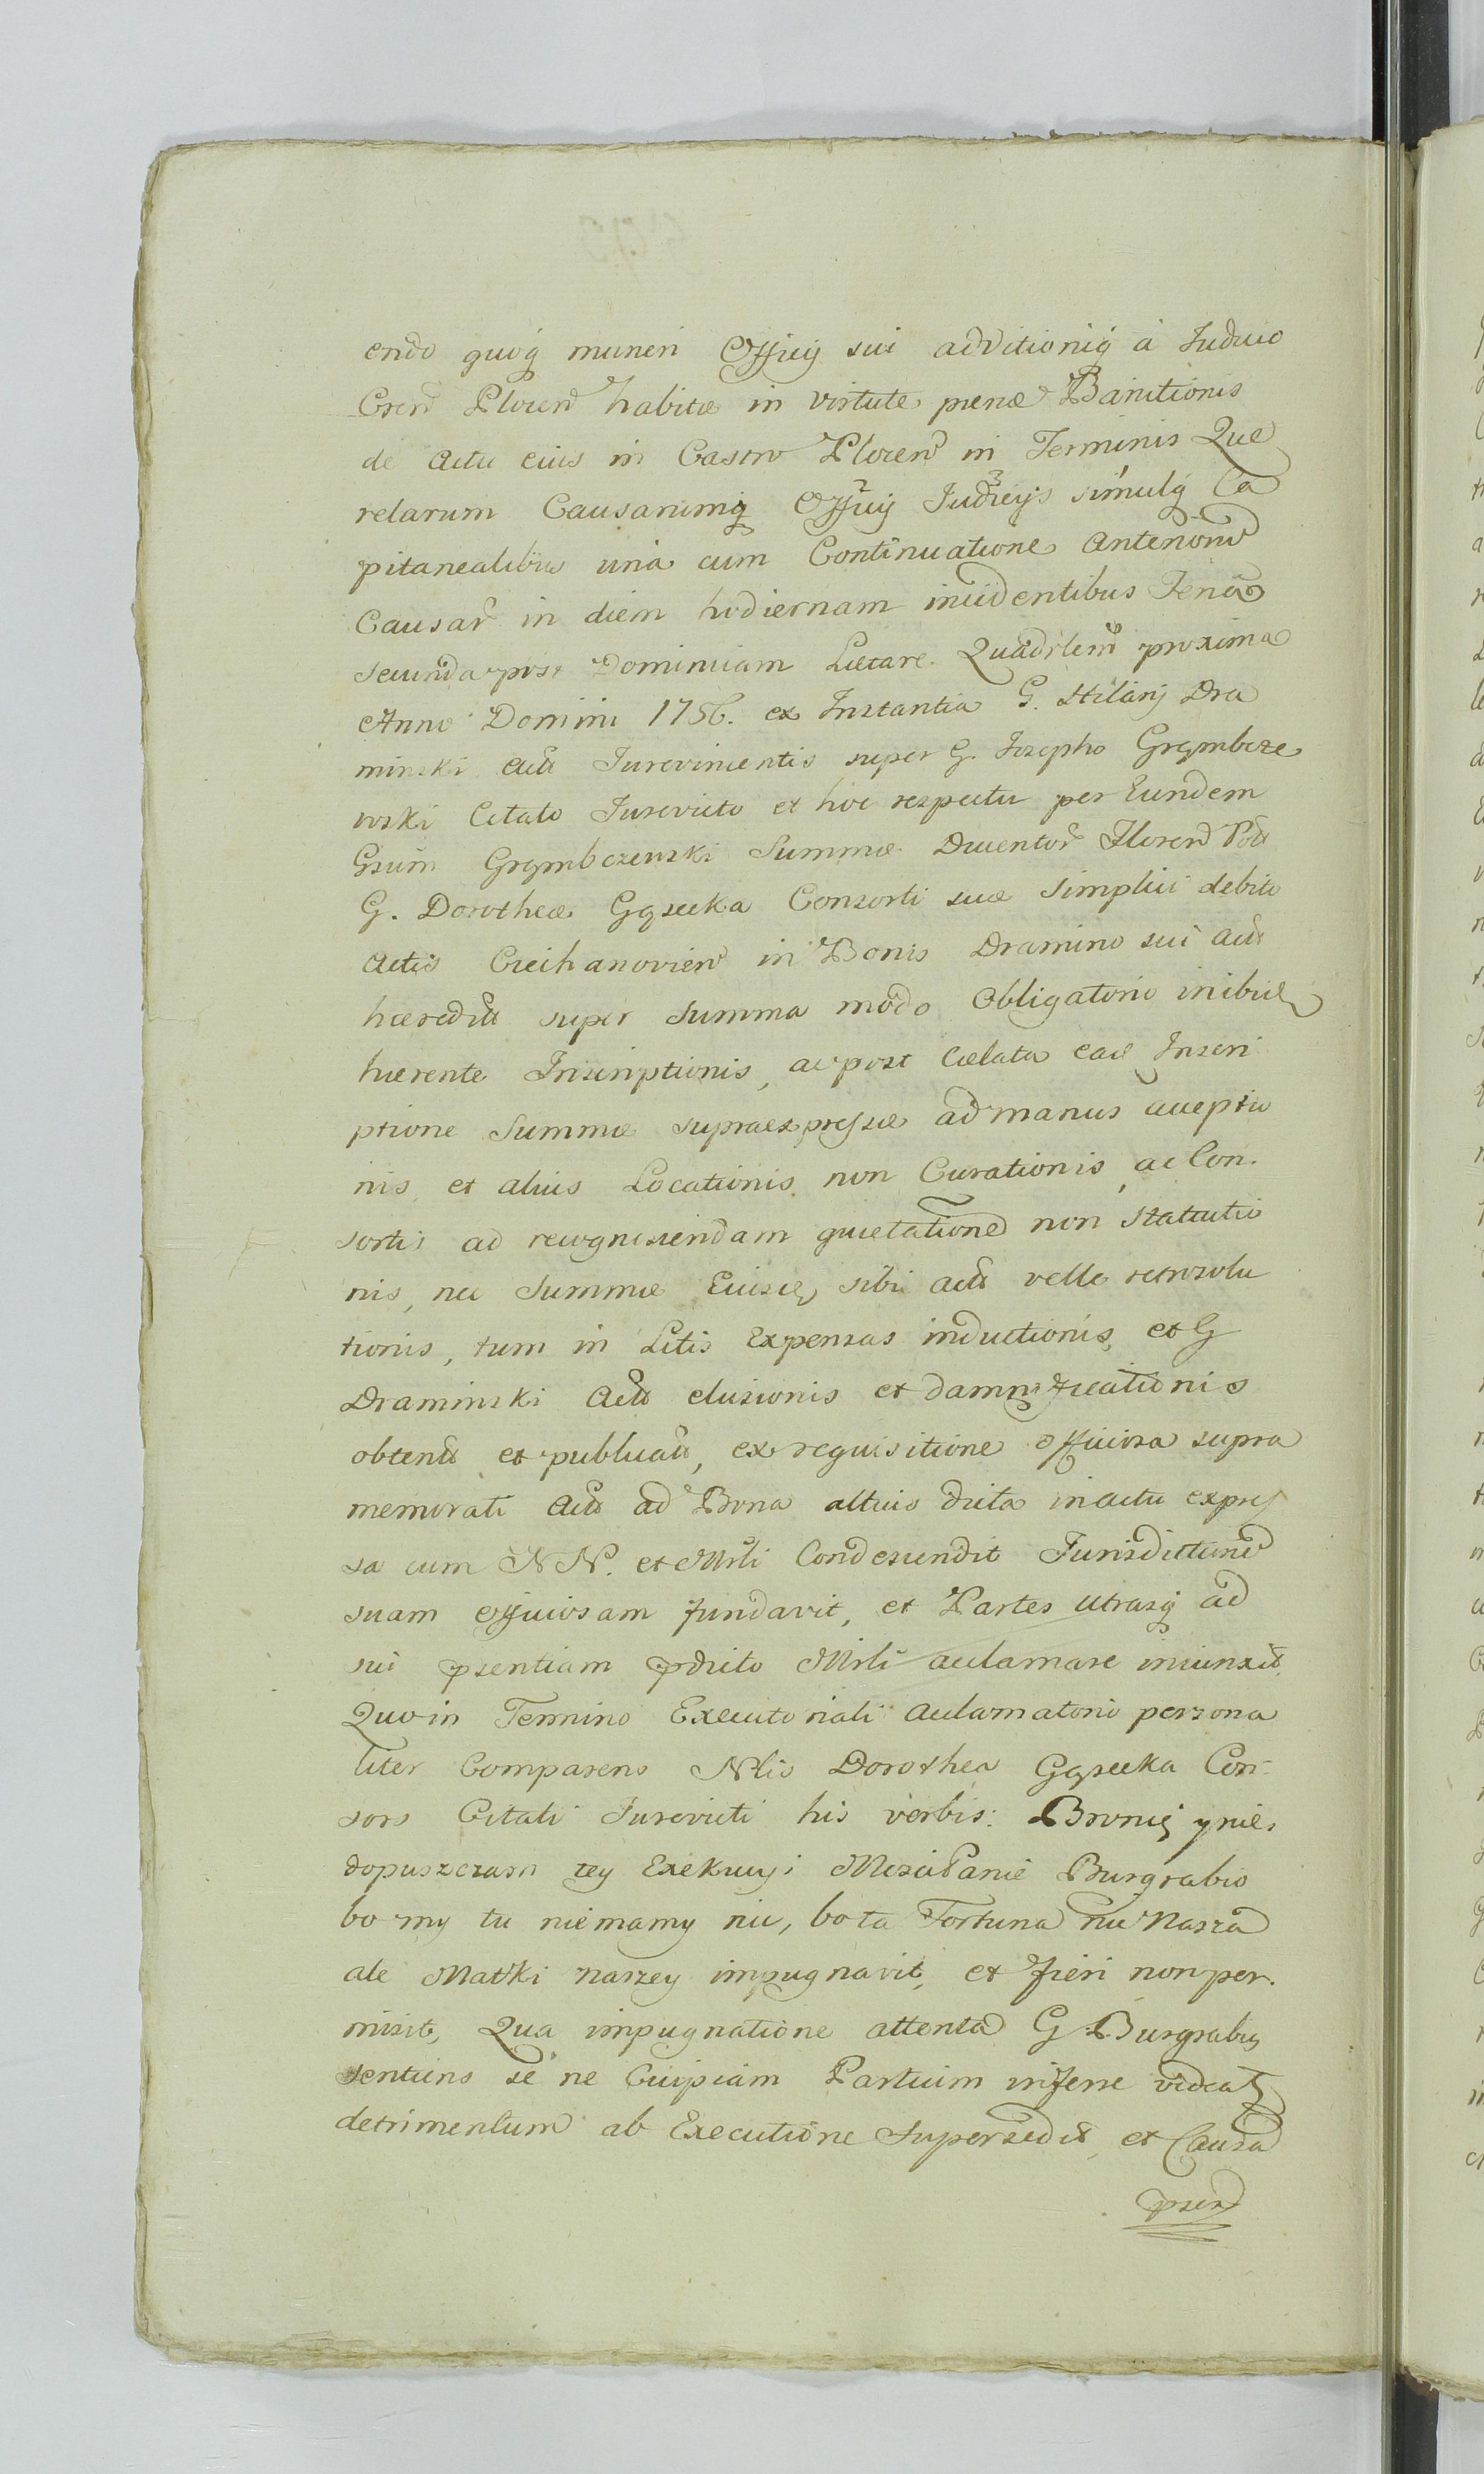 endo quoq muneri Officij sui additioniq à Judicio
Csren Plocen habitæ in virtute pænæ Banitionis
de Actu eius in Castro Plocen in Terminis Que
relarum Causarumq Officij Judicijs simulq Ca
pitanealibus unà cum Continuatione Anterioru
Causar in diem hodiernam incidentibus Feria
Secunda post Dominicam Lætare Quadrlem proxima
Anno Domini 1756. ex Instantia G. Hilarij Dra
minski Actt Jurevincentis super G. Josepho Grembcze
wski Citato Jurevicto et hoc respectu per Eundem
Gsum Grąmbczewski Summæ Ducentor Floren Poll
G. Dorotheæ Gąsecka Consorti suæ simplici debito
Actis Ciechanovien in Bonis Dramino sui Actt
hæreditt super Summa modo Obligatorio inibiq
hærente Inscriptionis, ac post Celata eaq Inscri
ptione Summæ supraexpressæ ad manus acceptio
nis et alius Locationis non Curationis, ac Con-
sortis ad recognoscendam quietatione non Statutio
nis, nec Summæ Eiusq sibi Actt velle retrosolu
tionis, tum in Litis Expensas inductionis, et G
Draminski Actt elusionis et damnificationis
obtentt et publicatt, ex requisitione officiosa supra
memorati Actt ad Bona altius dicta in actu expres
sa cum N N. et Mrli Condescendit Jurisdictione
suam officiosam fundavit, et Partes utrasq ad
sui psentiam pdicto Mrli acclamare iniunxit,
Quo in Termino Executoriali acclamatorio persona
liter Comparens Nlis Dorothea Gąsecka Con-
sors Citati Jurevicti his verbis: Bronię y nie
dopuszczam tey Exekucyi Mości Panie Burgrabio
bo my tu niemamy nic, bo ta Fortuna nie Nasza
ale Matki naszey impugnavit, et fieri non per-
misit, Qua impugnatione attenta G. Burgrabius
sentiens se ne Cuipiam Partium inferre videat
detrimentum ab Executione Supersedit, et Causa
psen